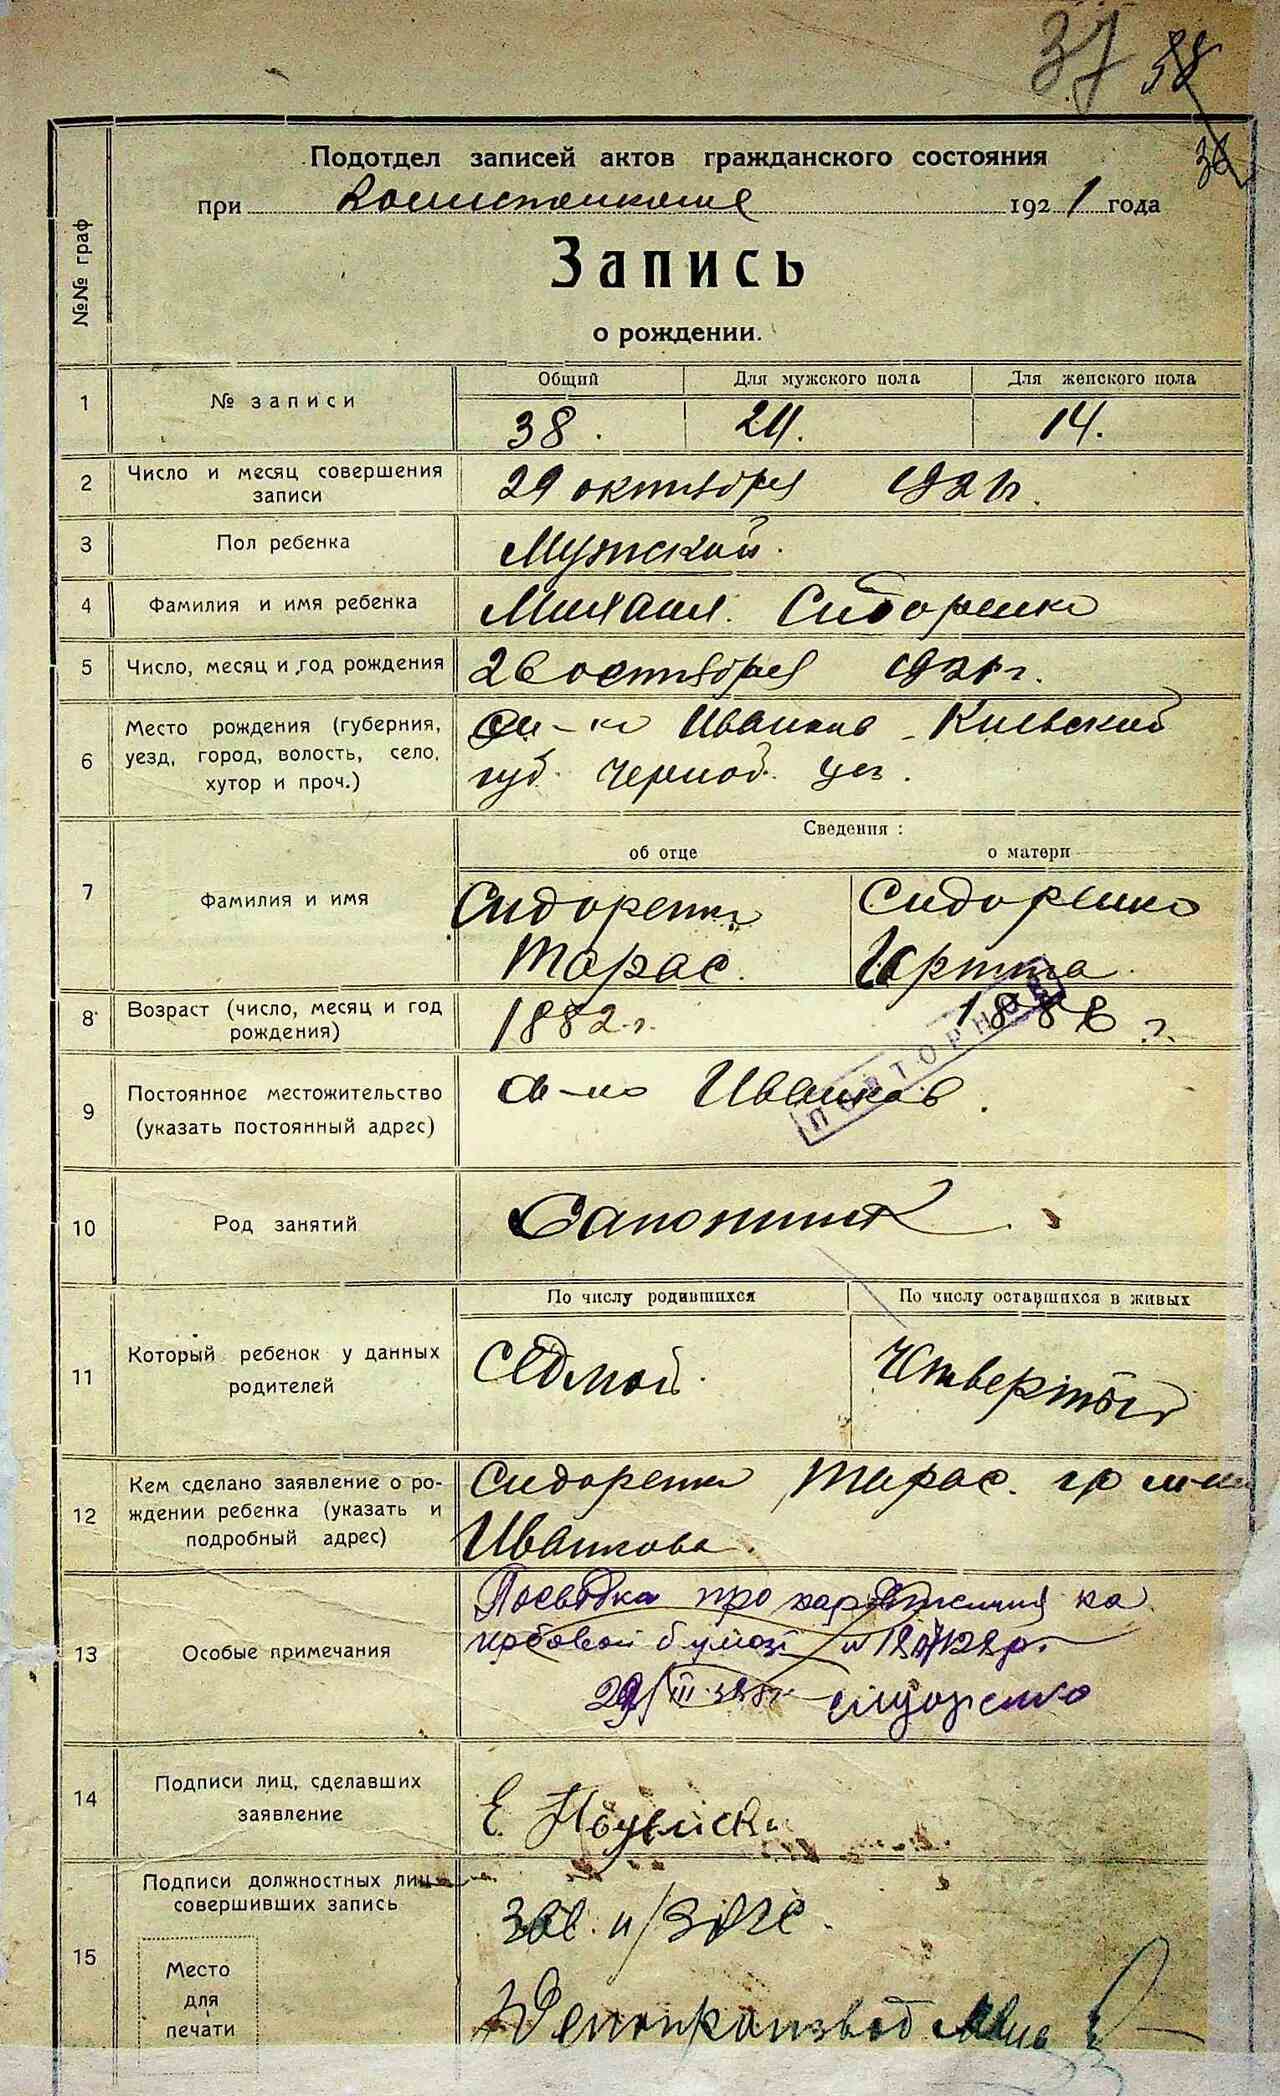 37 38
36
Подотдел записей актов гражданского состояния
при 1921 года
Запись
о рождении.
№№ граф
1 № записи
Общий Для мужского пола Для женского пола
38. 24. 14.
2 Число и месяц совершения записи
29 октября 1921г.
3 Пол ребенка
Мужской.
4 Фамилия и имя ребенка
Михаил. Сидоренко
5 Число, месяц и год рождения
26 октября 1921г.
6 Место рождения (губерния,
уезд, город, волость, село,
хутор и проч.)
м-ко Иванков Киевской
губ. Черноб. уез.
Сведения:
об отце о матери
7 Фамилия и имя
Сидоренко Сидоренко
Тарас.
8 Возраст (число, месяц и год
рождения)
1882 г. 1886 г.
ПОВТОРНОЕ
9 Постоянное местожительство
(указать постоянный адрес)
м-ко Иванков.
10 Род занятий
Сапожник.
По числу родившихся По числу оставшихся в живых
11 Который ребенок у данных
родителей
Седмой. Четвертый
12 Кем сделано заявление о ро-
ждении ребенка (указать и
подробный адрес)
Сидоренко Тарас. гр м-ка
Иванкова
13 Особые примечания
про на
бумазі
29/III
14 Подписи лиц, сделавших
заявление
Е.
15 Подписи должностных лиц
совершивших запись
Зав. п/ЗАГС.
Место
для
печати